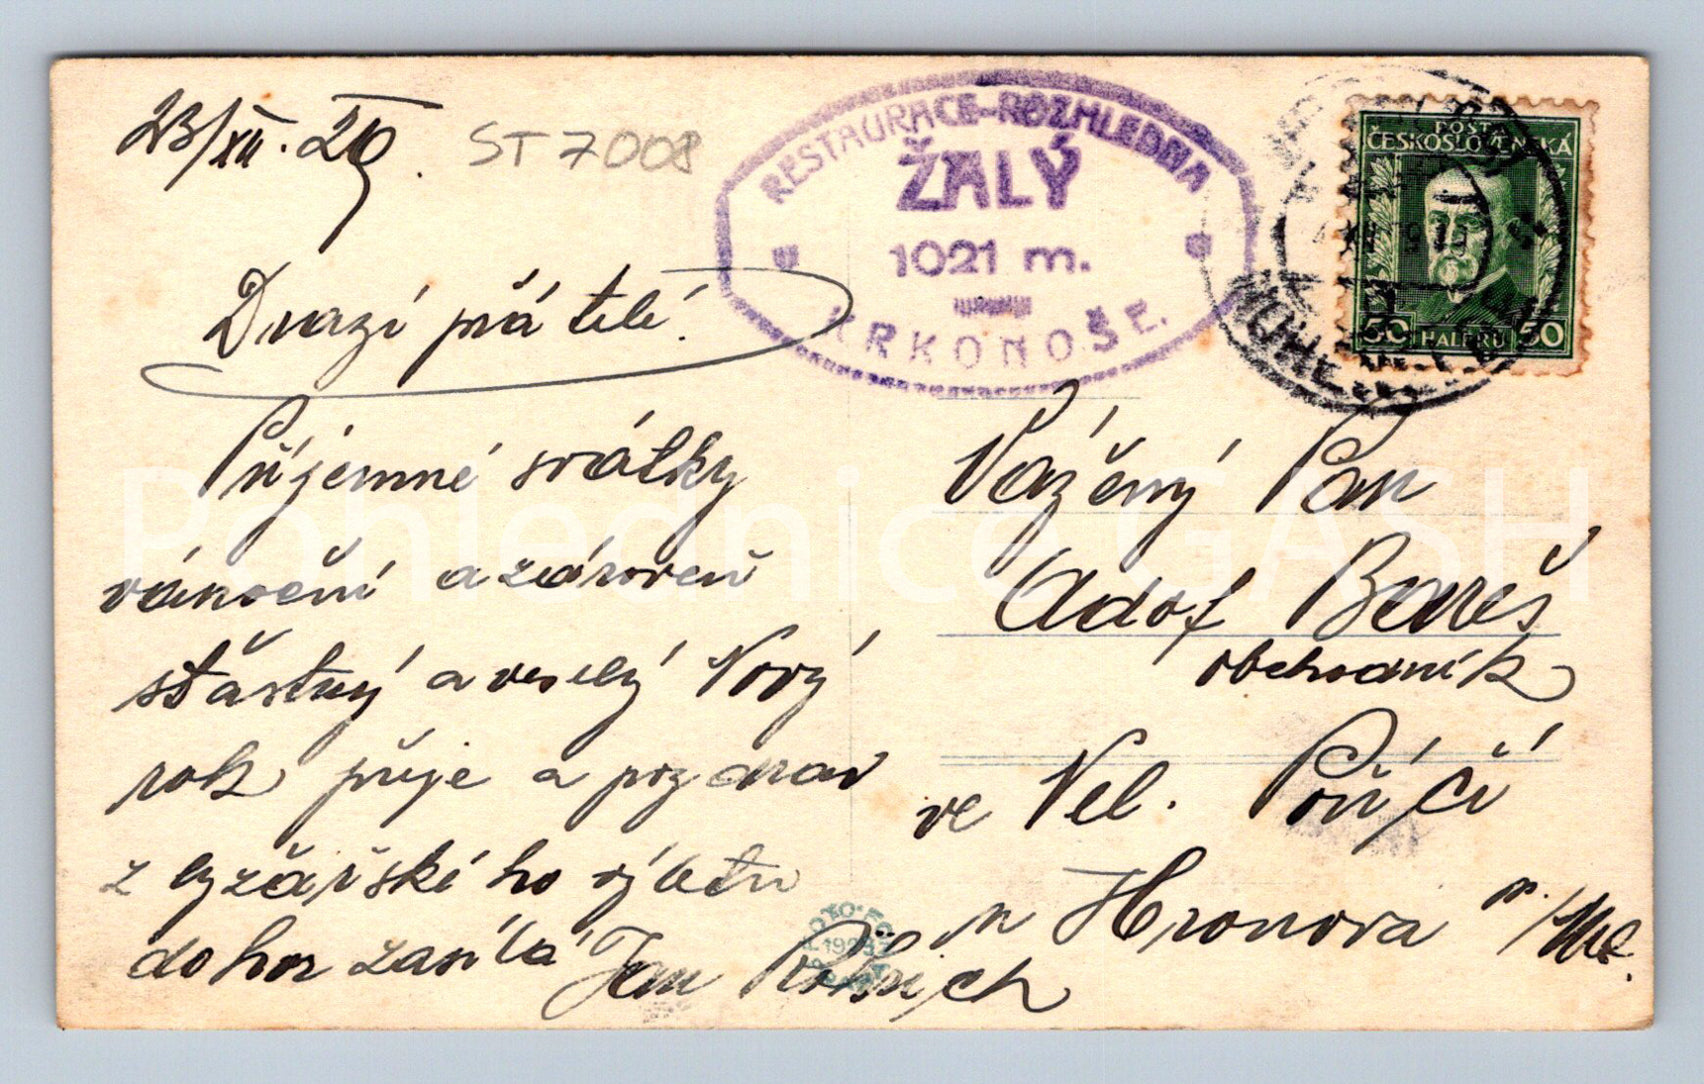 23/XII. 29.
ST 7008
RESTAURACE-ROZHLEDNA
ŽALÝ
1021 m.
KRKONOŠE.
POSTA
ČESKOSLOVENSKÁ
50 HALÉRŮ 50
Drazí přátelé!
Příjemné svátky
vánoční a zároveň
šťastný a veselý Nový
rok přeje a pozdrav
z lyžařského výletu
do hor zasílá Jan
Vážený Pan
Adolf Bareš
obchodník
ve Vel. Poříčí
u Hronova n./Met.
Pohlednice GASH